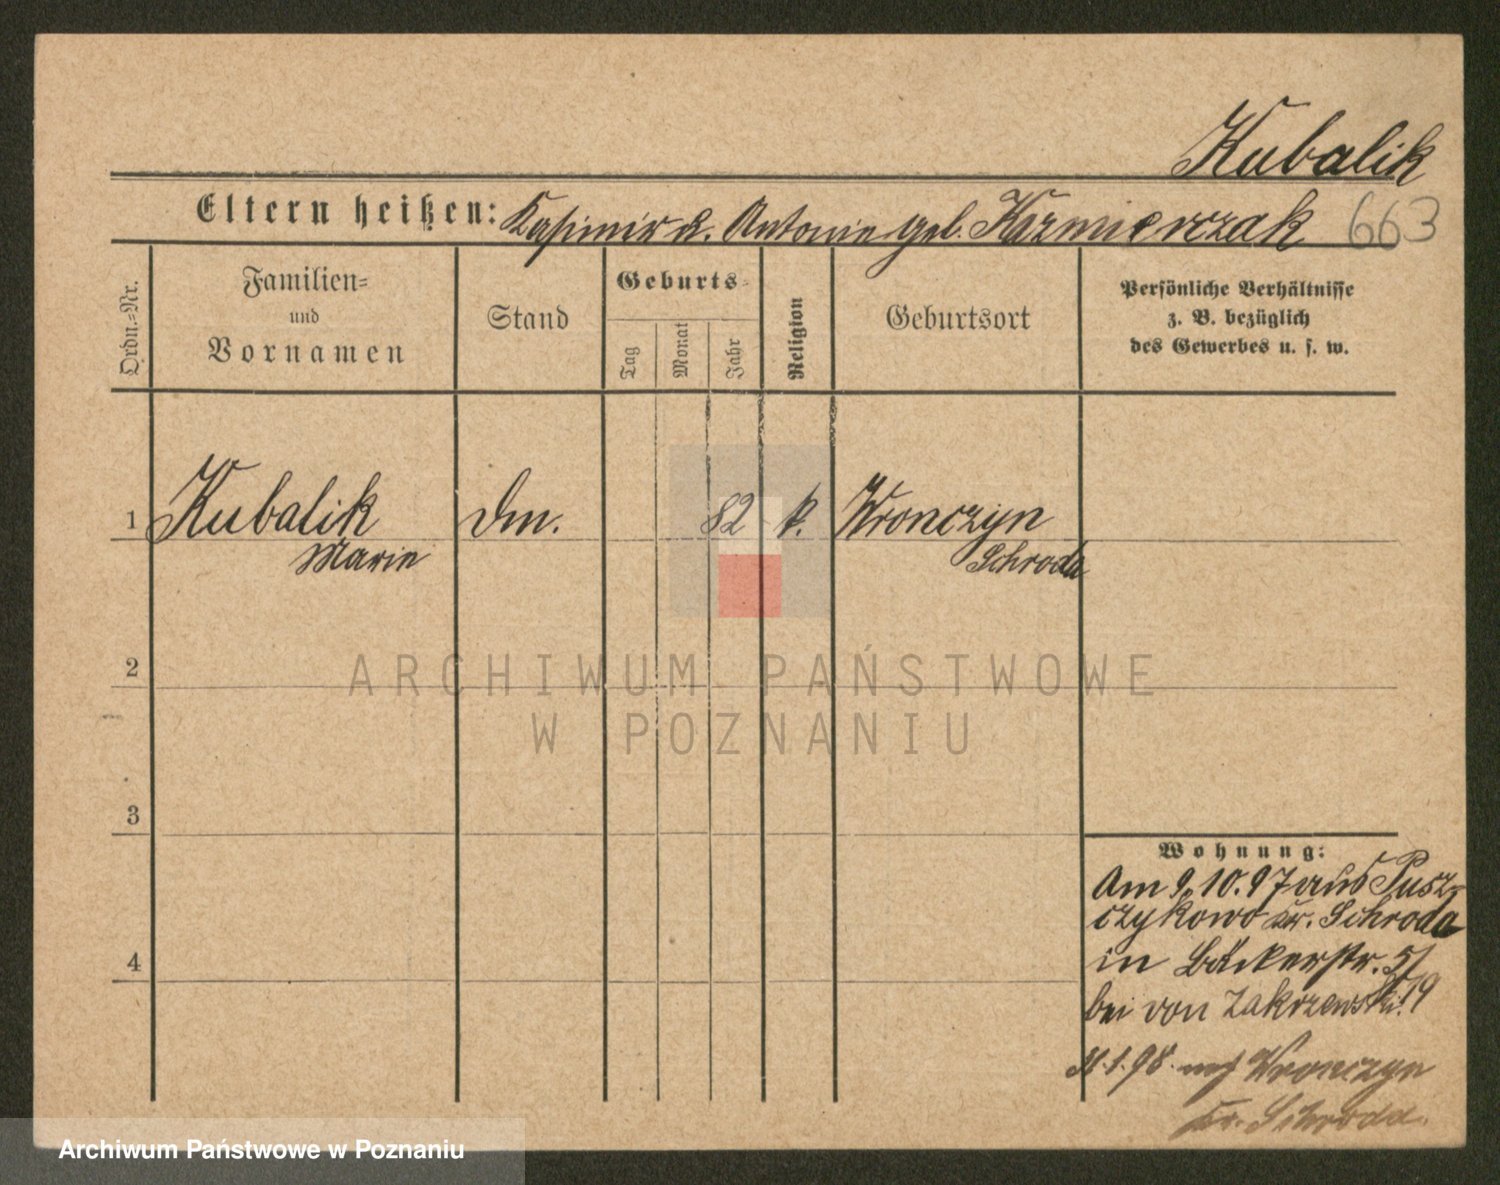 Kubalik
Eltern heißen: Kasimir u. Antonie geb. Kazmierczak 663
Ordn.=Nr.
Familien=
und
Vornamen
Stand
Geburts=
Tag
Monat
Jahr
Religion
Geburtsort
Persönliche Verhältnisse
z. B. bezüglich
des Gewerbes u. s. w.
1 Kubalik dm. 82 k. Wronczyn
Marie Schroda
2
ARCHIWUM PAŃSTWOWE
W POZNANIU
3
Wohnung:
Am 9.10.97 aus Pusz-
czykowo Kr. Schroda
4 in Bäckerstr.
bei von Zakrzewski. 19
1.98. Wronczyn
Kr. Schroda.
Archiwum Państwowe w Poznaniu